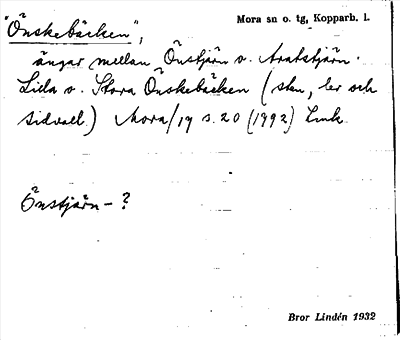 "Önskebäcken",
Mora sn o. tg, Kopparb. l.
ängar mellan Önstjärn o.
Lilla o. Stora Önskebäcken (sten, ler och
sidvall) Mora/19 s. 20 (1992) Link.
Önstjärn - ?
Bror Lindén 1932